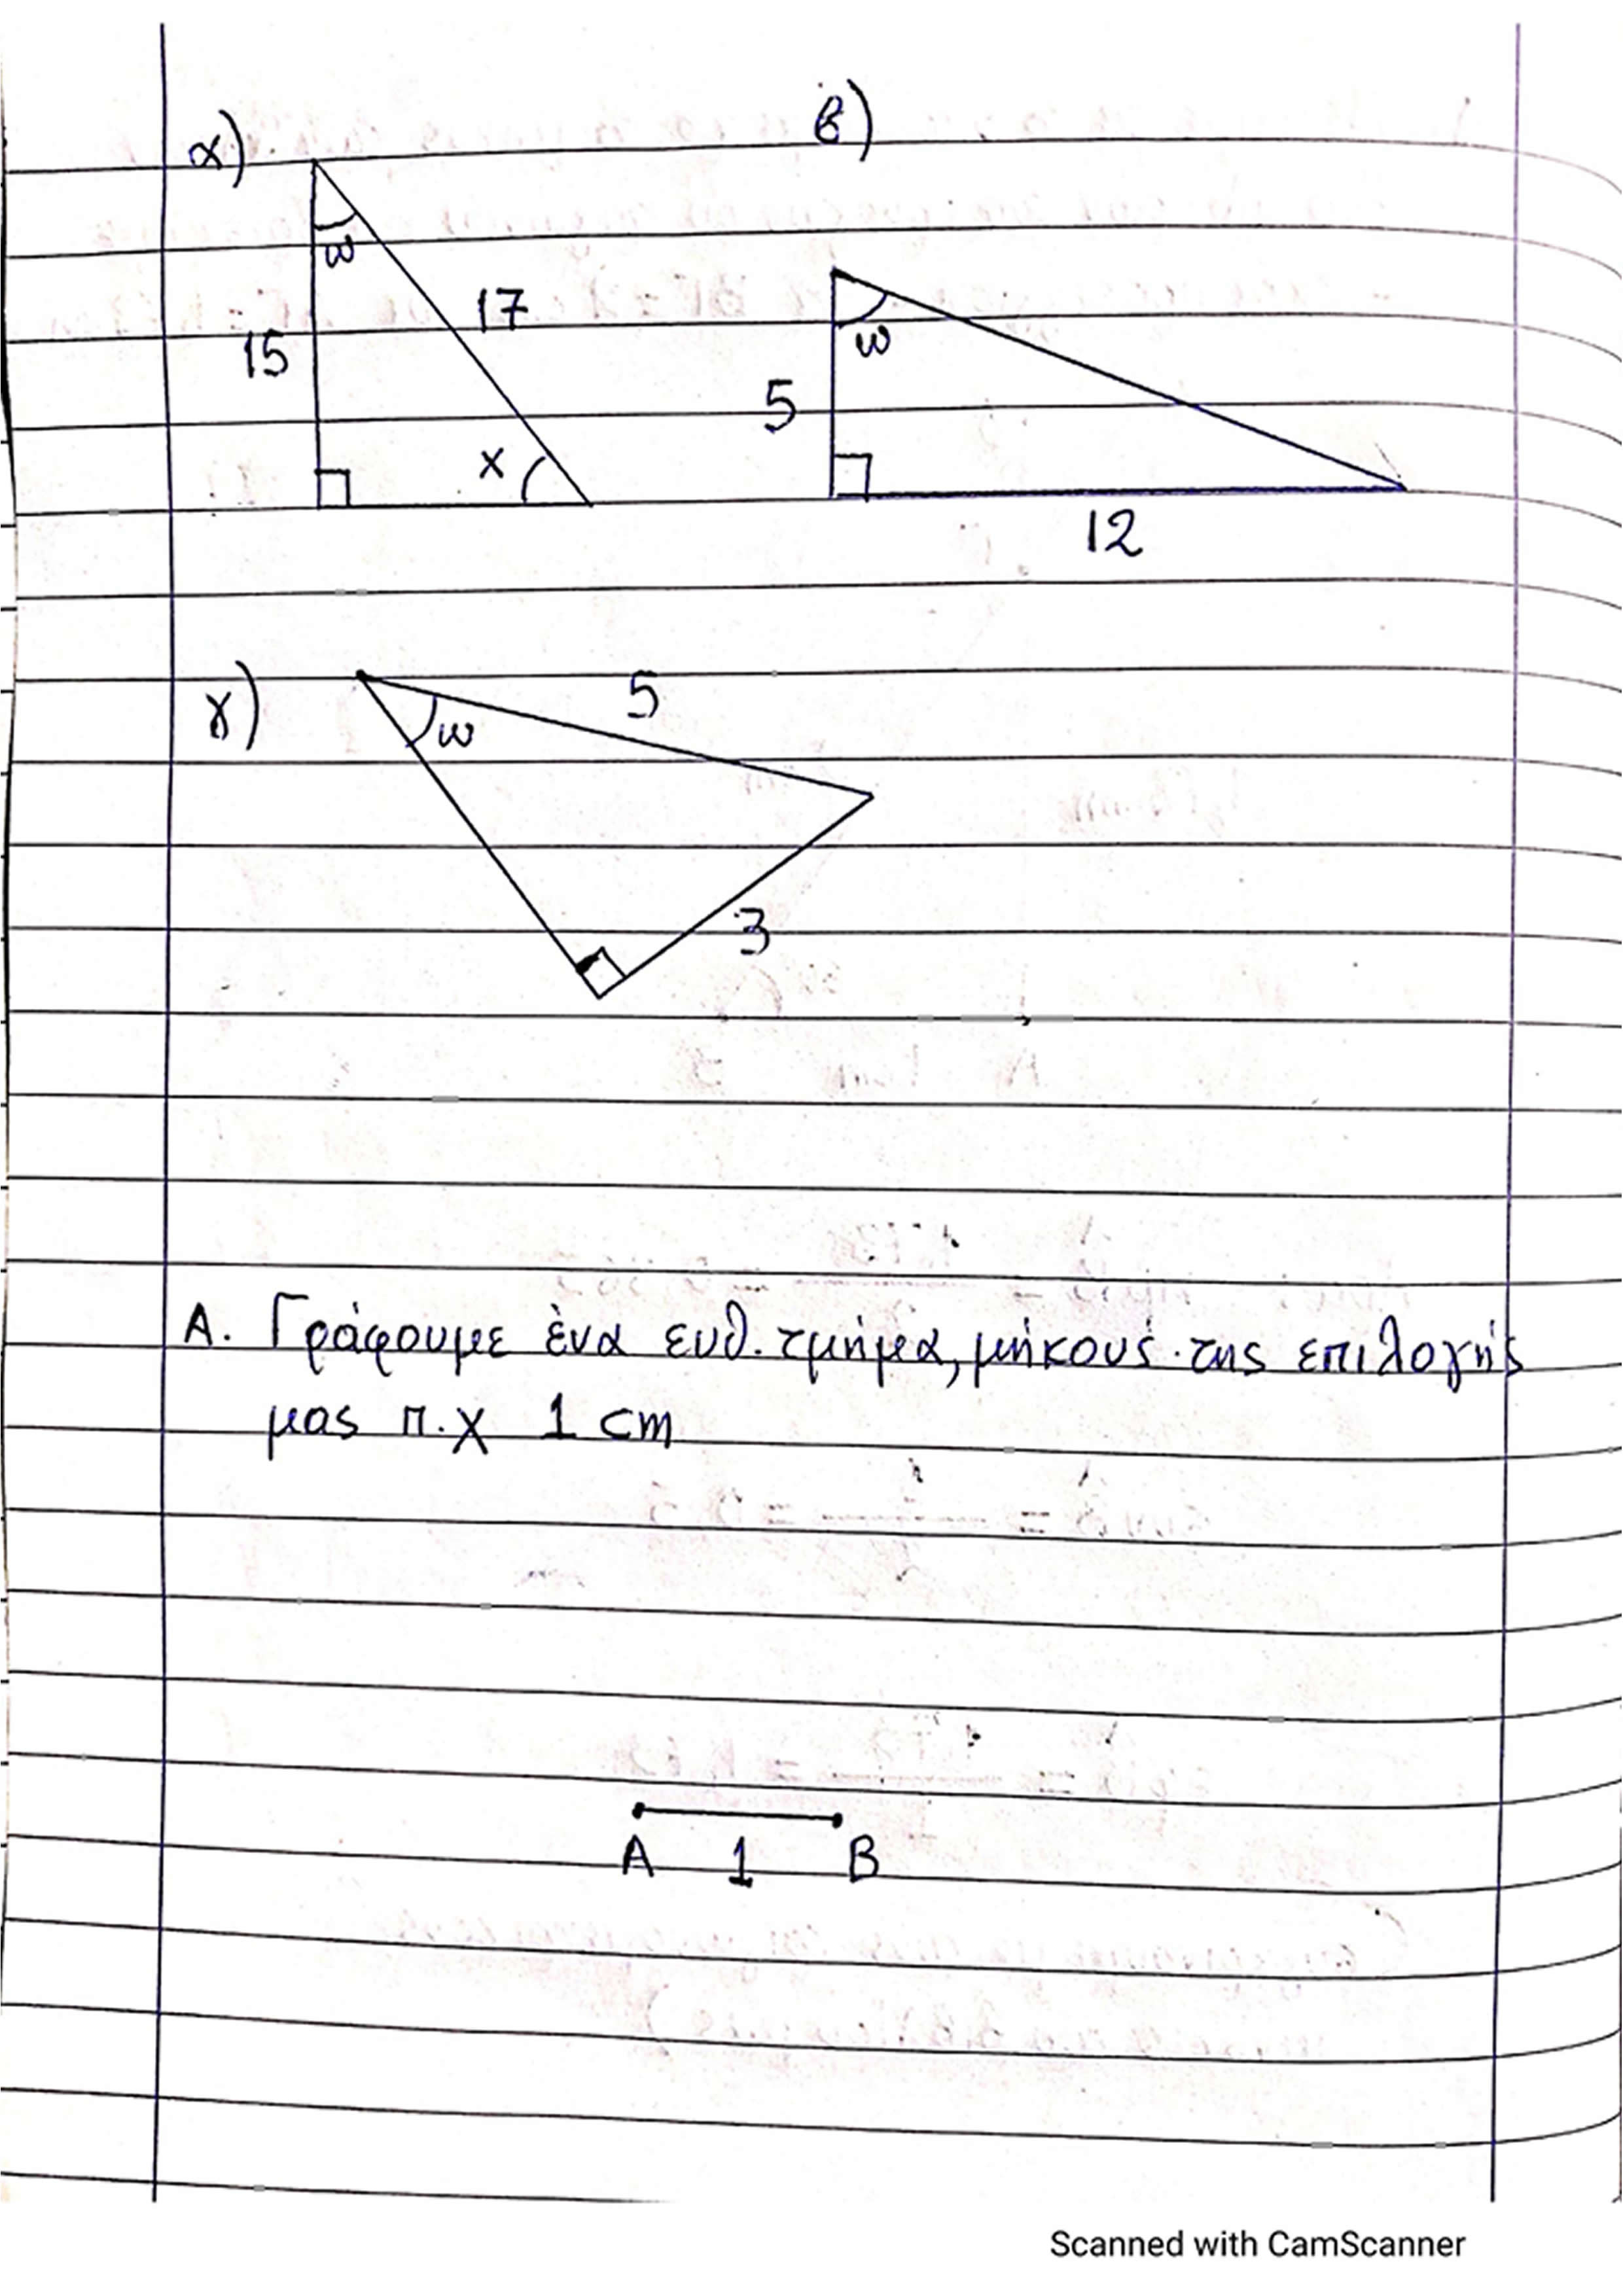 α) β)
ω
17
15
ω
5
x
12
γ)
5
ω
3
Α. Γράφουμε ένα ευθ. τμήμα, μήκους της επιλογής
μας π.χ 1 cm
A 1 B
Scanned with CamScanner